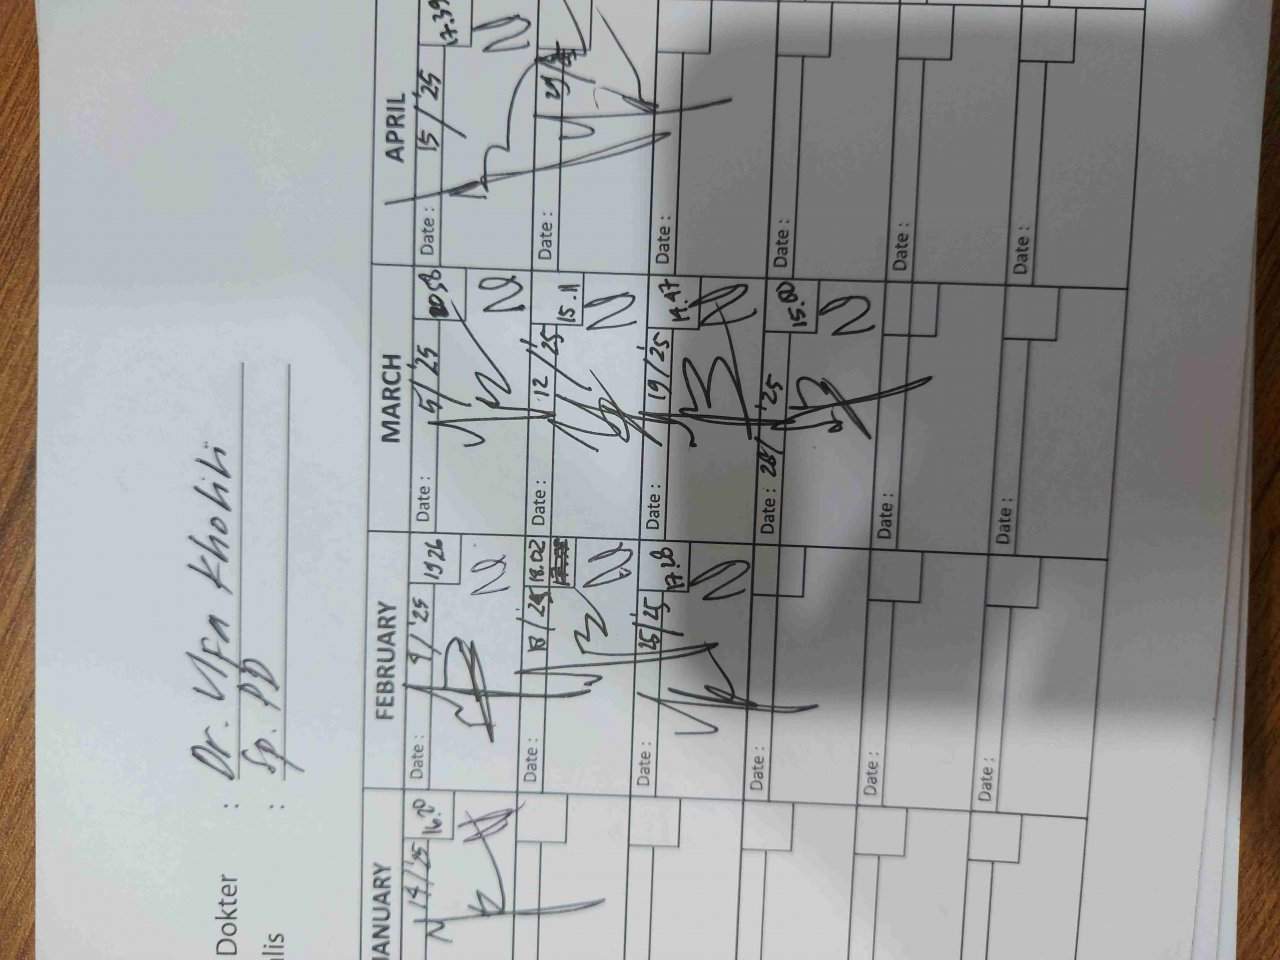 Dokter : Dr. Ufa Kholili
alis : Sp. PD
JANUARY FEBRUARY MARCH APRIL
14/'25 16.20 Date : 4/'25 19 26 Date : 5/'25 20 58 Date : 15/'25 17.39
Date : 18/'25 18.02 Date : 12/'25 15.11 Date :
Date : 25/'25 17 28 Date : 19/'25 14.47 Date :
Date : Date : 28/'25 15.00 Date :
Date : Date : Date :
Date : Date : Date :